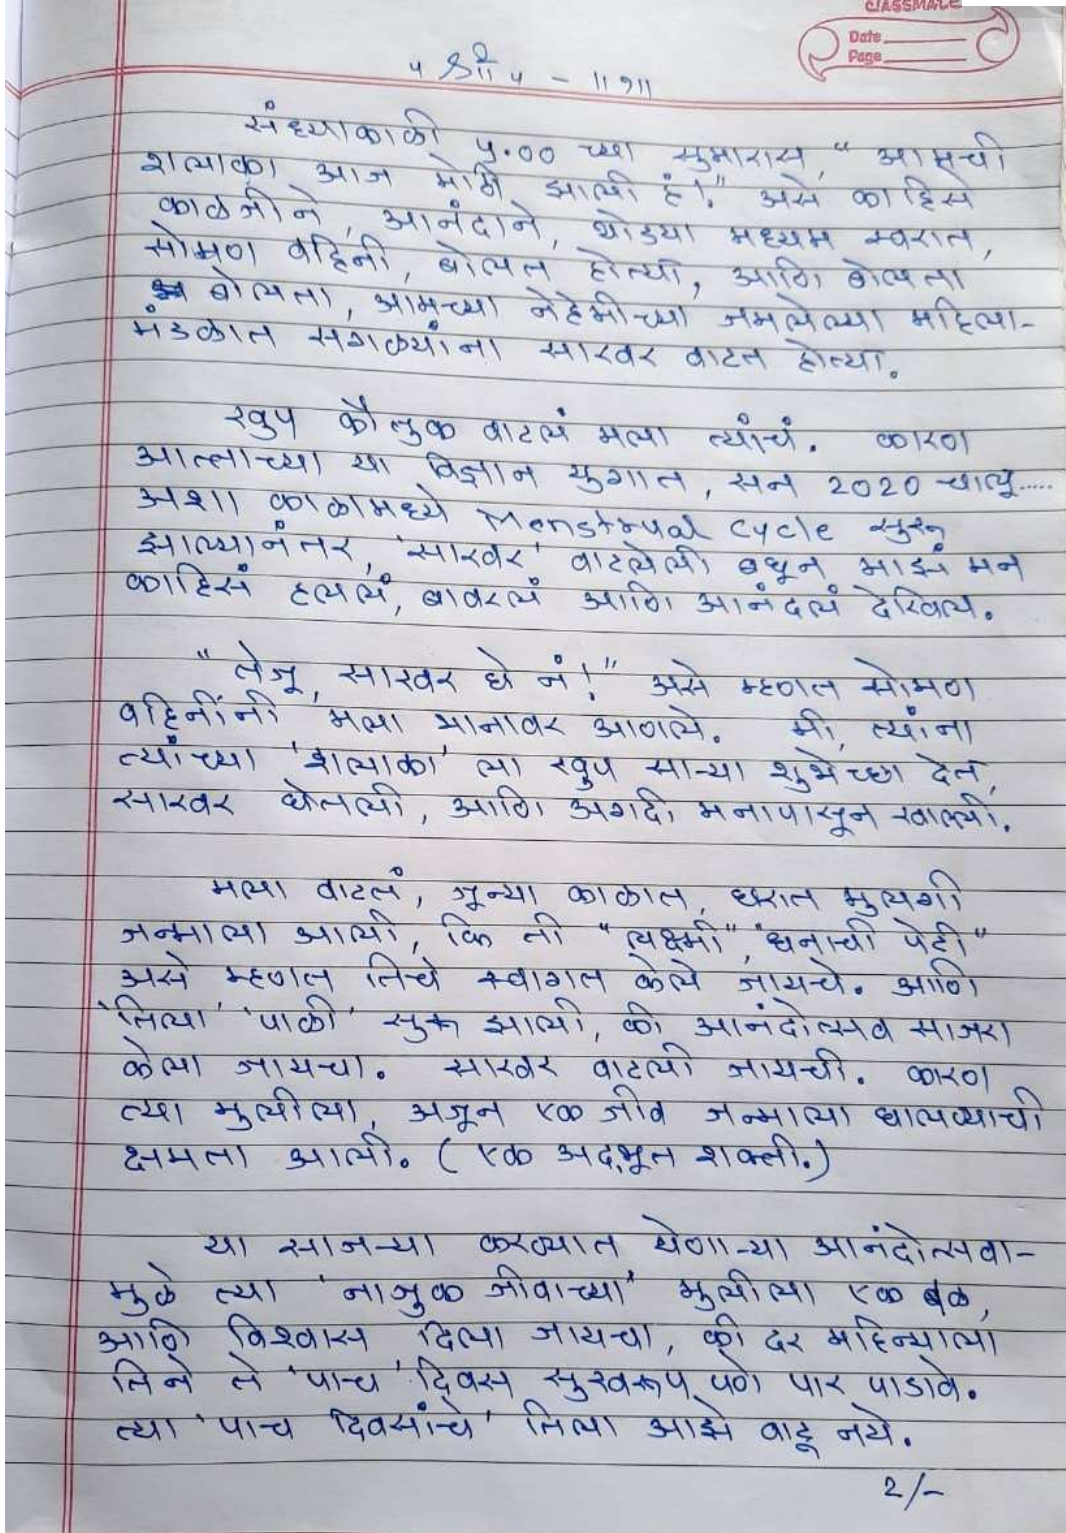 CLASSMATE
Date
Page
५ श्री ५ - ॥१॥
संध्याकाळी ५.०० च्या सुमारास, "आमची
शलाका आज मोठी झाली हं!" असे काहिसे
काळजीने, आनंदाने, थोड्या मध्यम स्वरात,
सोमण वहिनी, बोलत होत्या, आणि बोलता
बोलता, आमच्या नेहेमीच्या जमलेल्या महिला-
मंडळात सगळ्यांना साखर वाटत होत्या.
खुप कौतुक वाटलं मला त्यांचं. कारण
आत्ताच्या या विज्ञान युगात, सन 2020 चालू.....
अशा काळामध्ये Menstrual cycle सुरू
झाल्यानंतर, 'साखर' वाटलेली बघून माझं मन
काहिसं हललं, बावरलं आणि आनंदलं देखिल.
"तेजू, साखर घे नं!" असे म्हणत सोमण
वहिनींनी मला भानावर आणले. मी, त्यांना
त्यांच्या 'शलाका' ला खुप साऱ्या शुभेच्छा देत,
साखर घेतली, आणि अगदी मनापासून खाल्ली.
मला वाटतं, जून्या काळात, घरात मुलगी
जन्माला आली, कि ती "लक्ष्मी", "धनाची पेटी"
असे म्हणत तिचे स्वागत केले जायचे. आणि
'तिला' 'पाळी' सुरू झाली, की आनंदोत्सव साजरा
केला जायचा. साखर वाटली जायची. कारण
त्या मुलीला, अजून एक जीव जन्माला घालण्याची
क्षमता आली. (एक अद्भूत शक्ती.)
या साजऱ्या करण्यात येणाऱ्या आनंदोत्सवा-
मुळे त्या 'नाजुक जीवाच्या' मुलीला एक बळ,
आणि विश्वास दिला जायचा, की दर महिन्याला
तिने ते 'पाच' दिवस सुखरूप पणे पार पाडावे.
त्या 'पाच दिवसांचे' तिला ओझे वाटू नये.
2/-